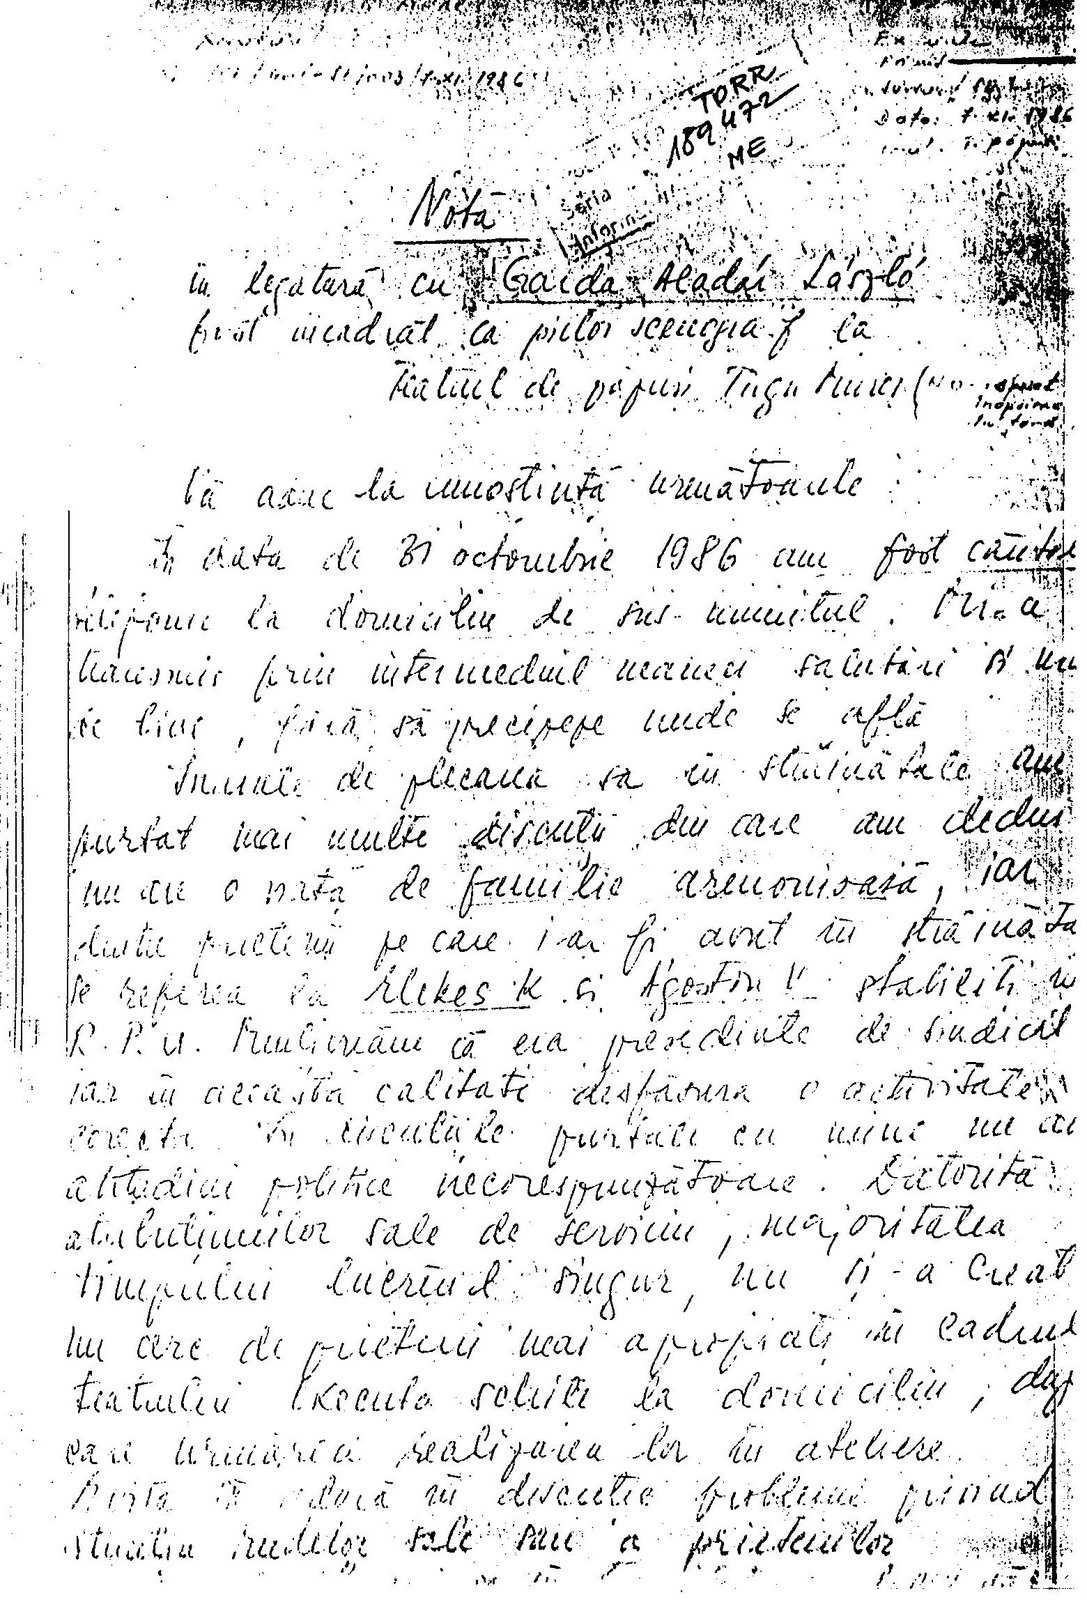 7.XI.1986
Data: 7.XI.1986
TORR
189472
ME
Notă
în legătură cu Gaida Aladár László
fost încadrat ca pictor scenograf la
Teatrul de păpuși Tîrgu Mureș
Vă aduc la cunoștință următoarele:
În data de 31 octombrie 1986 am fost căutat
telefonic la domiciliu de sus-numitul. Mi-a
transmis prin intermediul mamei salutări și
de bine, fără să precizeze unde se află
Înainte de plecarea sa în străinătate am
purtat mai multe discuții din care am dedus
nu are o viață de familie armonioasă, iar
dintre prietenii pe care i-ar fi avut în străinăta
se referea la Elekes K și Agoston V stabiliți în
R.P.U. Menționăm că era președinte de sindicat
iar în această calitate desfășura o activitate
corectă. În discuțiile purtate cu mine nu
atitudini politice necorespunzătoare. Datorită
atribuțiunilor sale de serviciu, majoritatea
timpului lucrînd singur, nu și-a creat
un cerc de prieteni mai apropiați în cadrul
teatrului. Executa schițe la domiciliu, după
care urmărea realizarea lor în ateliere.
Evita să aducă în discuție probleme privind
situația rudelor sale sau a prietenilor